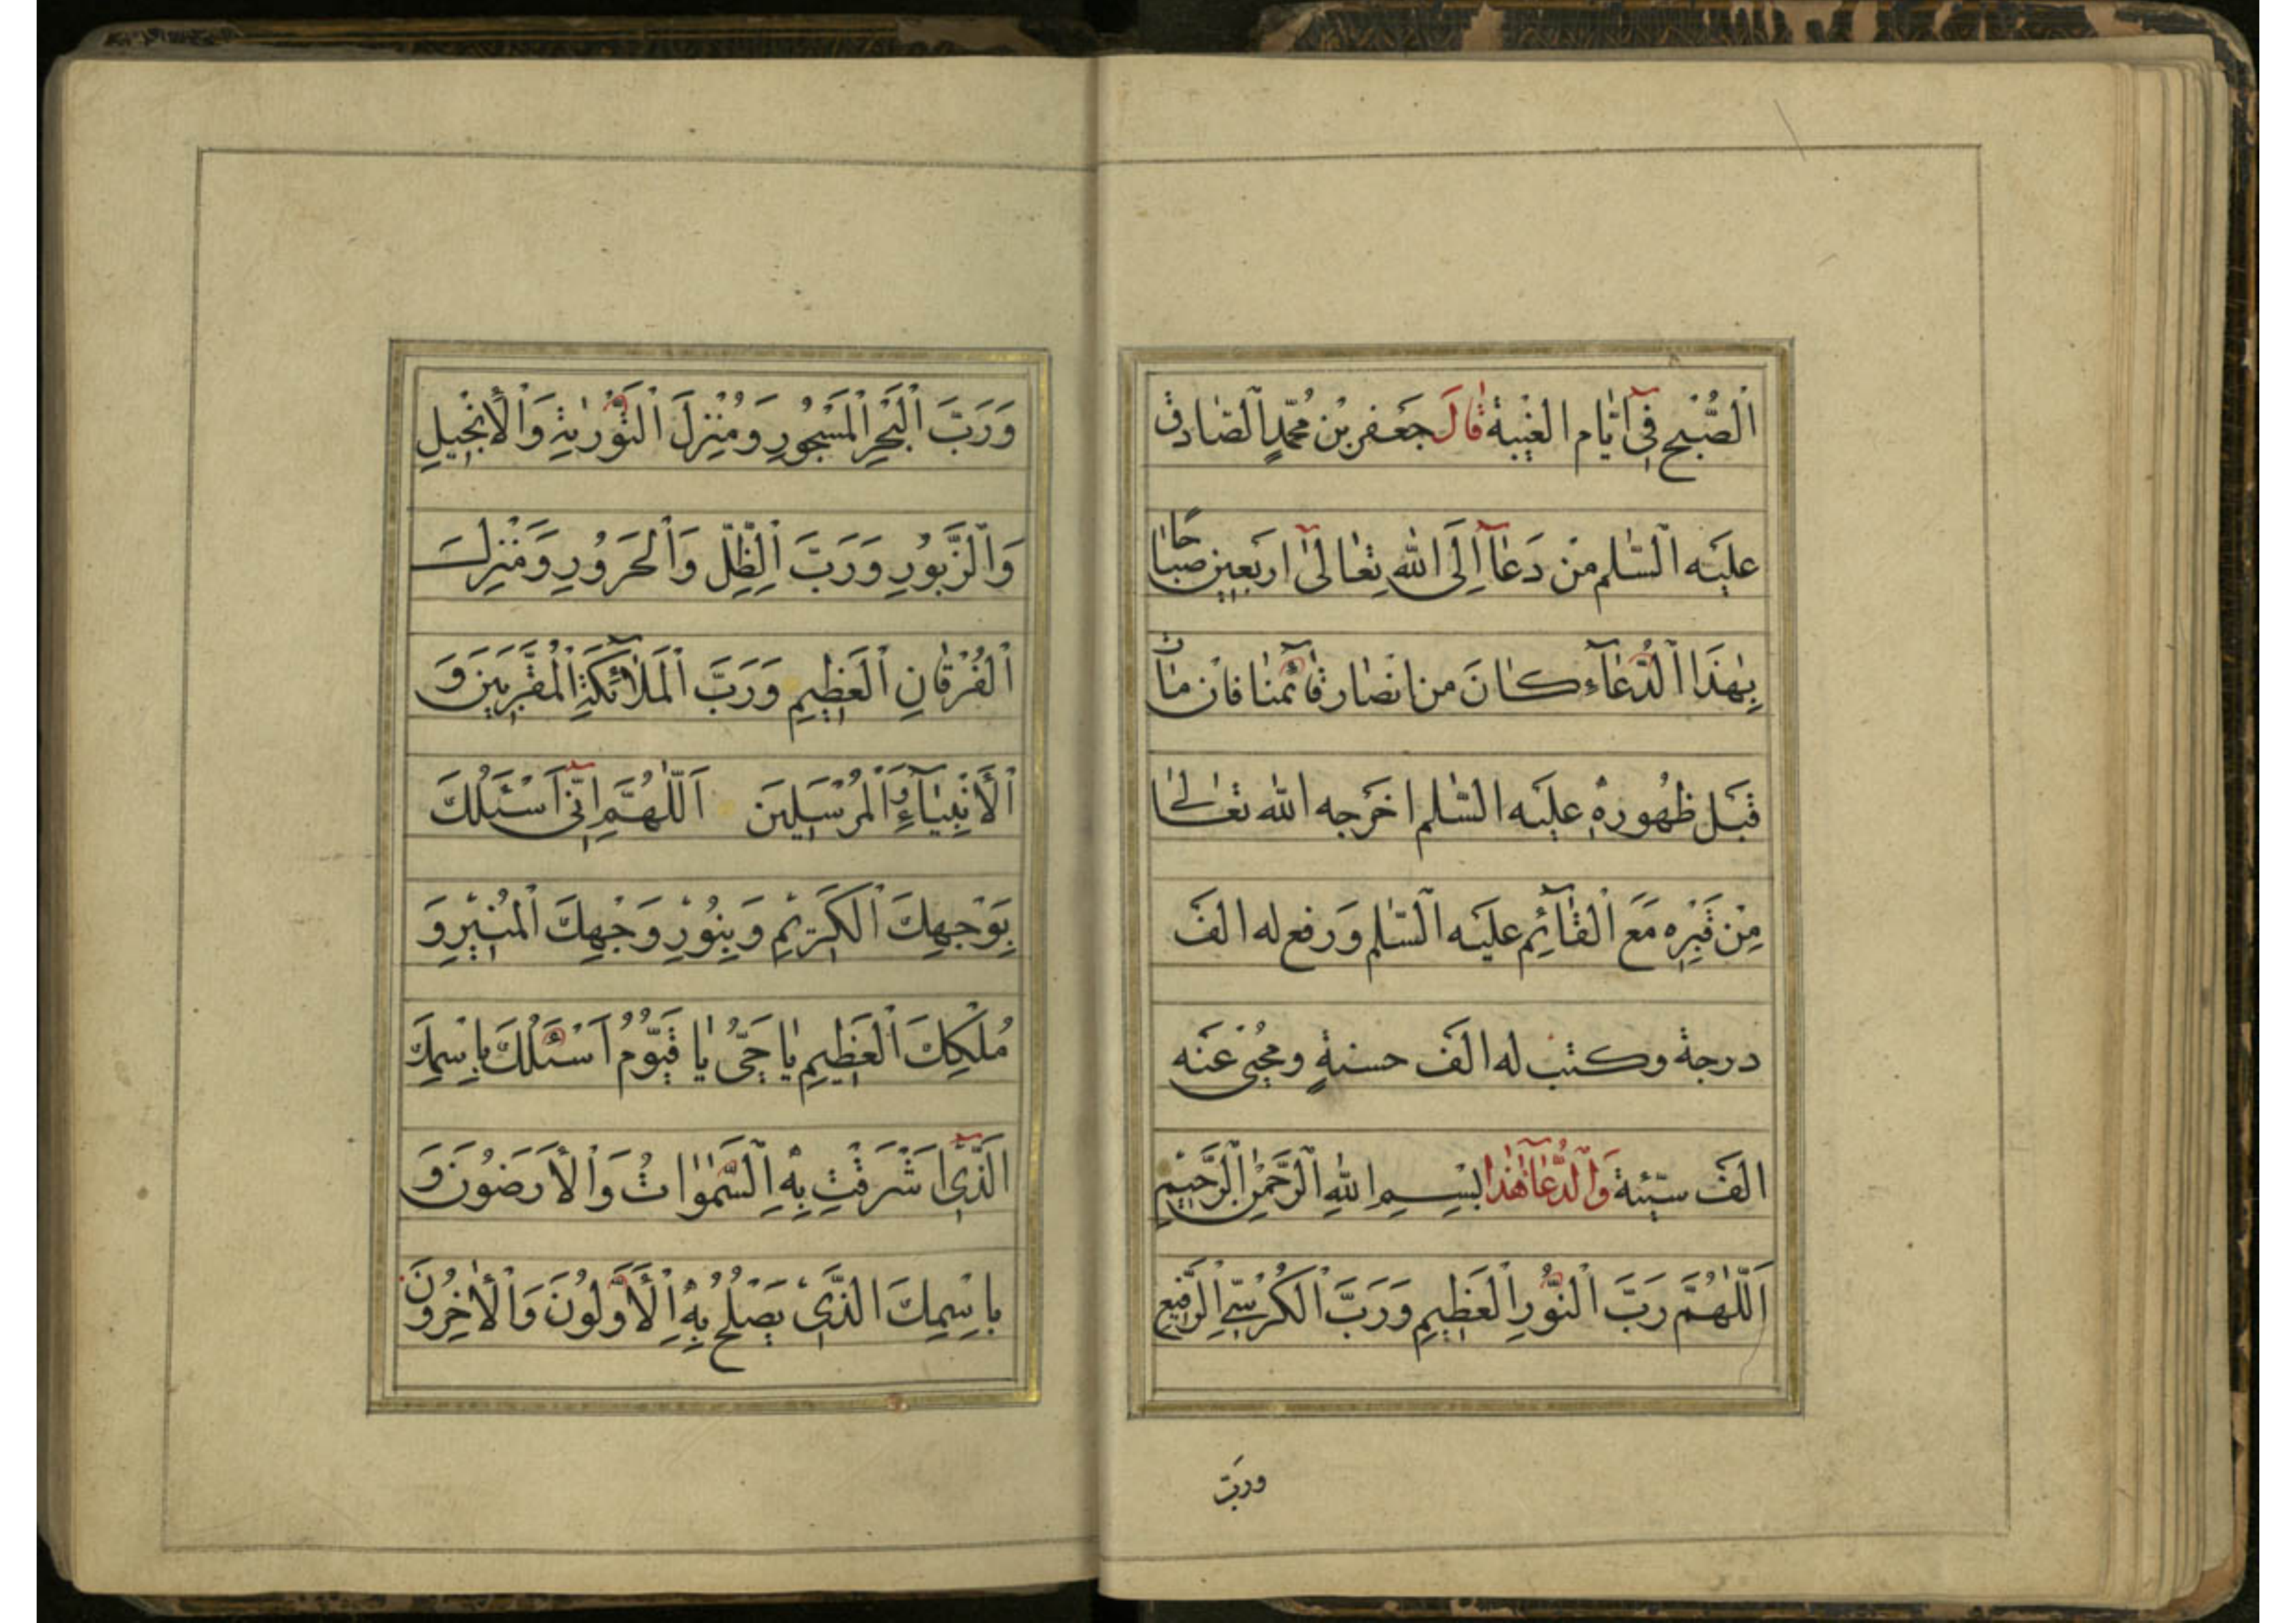 اَلصُّبْحِ فِیۤ اَیّٰامِ الغَیْبَةِ قٰالَ جَعْفَرِ بْنِ مُحَمَّدٍ اَلصّٰادِق
عَلَیْهِ اَلسَّلٰم مَنْ دَعٰاۤ اِلَی اللّٰهِ تَعٰالیٰۤ اَرْبَعِینَ صَبٰاحًا
بِهٰذَا الْدُّعٰآءِ کٰانَ مِن اَنْصٰارِ قٰآئِمِنٰا فَاِنْ مٰاتَ
قَبْلَ ظُهُورِهِ عَلَیْهِ السَّلٰم اَخْرَجَهُ اللّٰه تَعٰالیٰ
مِنْ قَبْرِهِ مَعَ الْقٰآئِمِ عَلَیْهِ اَلسَّلٰم وَرَفَعَ لَه اَلْفَ
درجة وکتب له الف حسنةٍ ومُحِیَ عَنه
الفَ سیّئة وَالدُّعٰآ هٰذا بِسْمِ اللّٰهِ اَلرَّحْمٰنِ اَلرَّحِیْمِ
اَللّٰهُمَّ رَبَّ الْنُّورِ الْعَظِیمِ وَرَبَّ الْکُرْسِیِّ اِلرَّفِیعِ
وربّ
وَرَبَّ الْبَحْرِ الْمَسْجُورِ وَمُنْزِلَ الْتَّوْرٰیةِ وَالْأِنْجِیلِ
وَاَلزَّبُورِ وَرَبَّ اِلْظِّلِّ وَالْحَرُورِ وَمُنْزِلَ
اَلْفُرْقٰانِ اَلْعَظِیمِ وَرَبَّ اَلْمَلٰآئِکَةِ الْمُقَرَّبِینَ وَ
اَلْأَنْبِیٰآءِ وَالْمُرْسَلِینَ اَللّٰهُمَّ اِنِّیۤ اَسْئَلُكَ
بِوَجْهِكَ اَلْکَرِیْمِ وَبِنُوْرِ وَجْهِكَ اَلْمُنِیْرِ وَ
مُلْکِكَ اَلْعَظِیمِ یٰا حَیُّ یٰا قَیُّوْمُ اَسْئَلُكَ بِاسْمِكَ
الَّذِیۤ اَشْرَقَتْ بِهِ اِلْسَّمٰوٰاتُ وَالْأَرَضُونَ وَ
بِاسْمِكَ الَّذِیْ یَصْلُحُ بِهِ اِلْأَوَّلُونَ وَالْأٰخِرُونَ